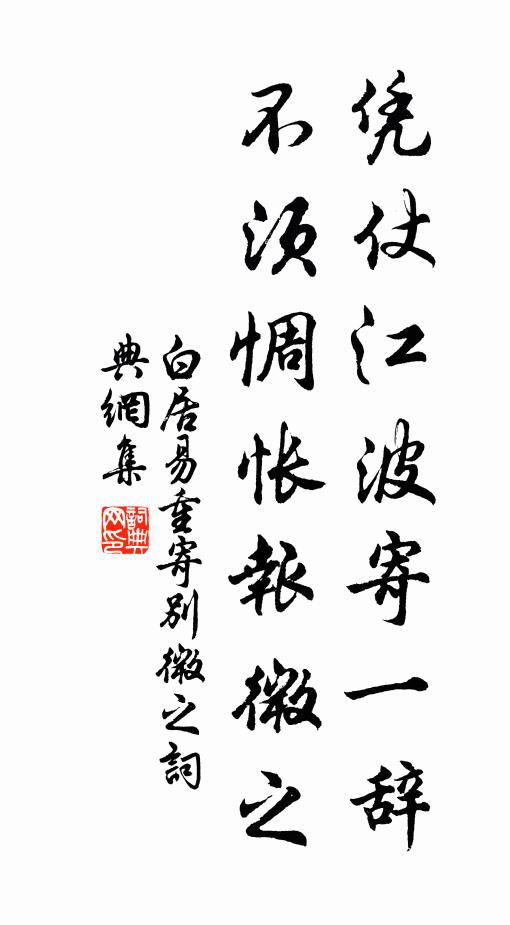 凭仗江波寄一辞
不须惆怅報微之
白居易重寄别微之詞
典網集
詞典网印